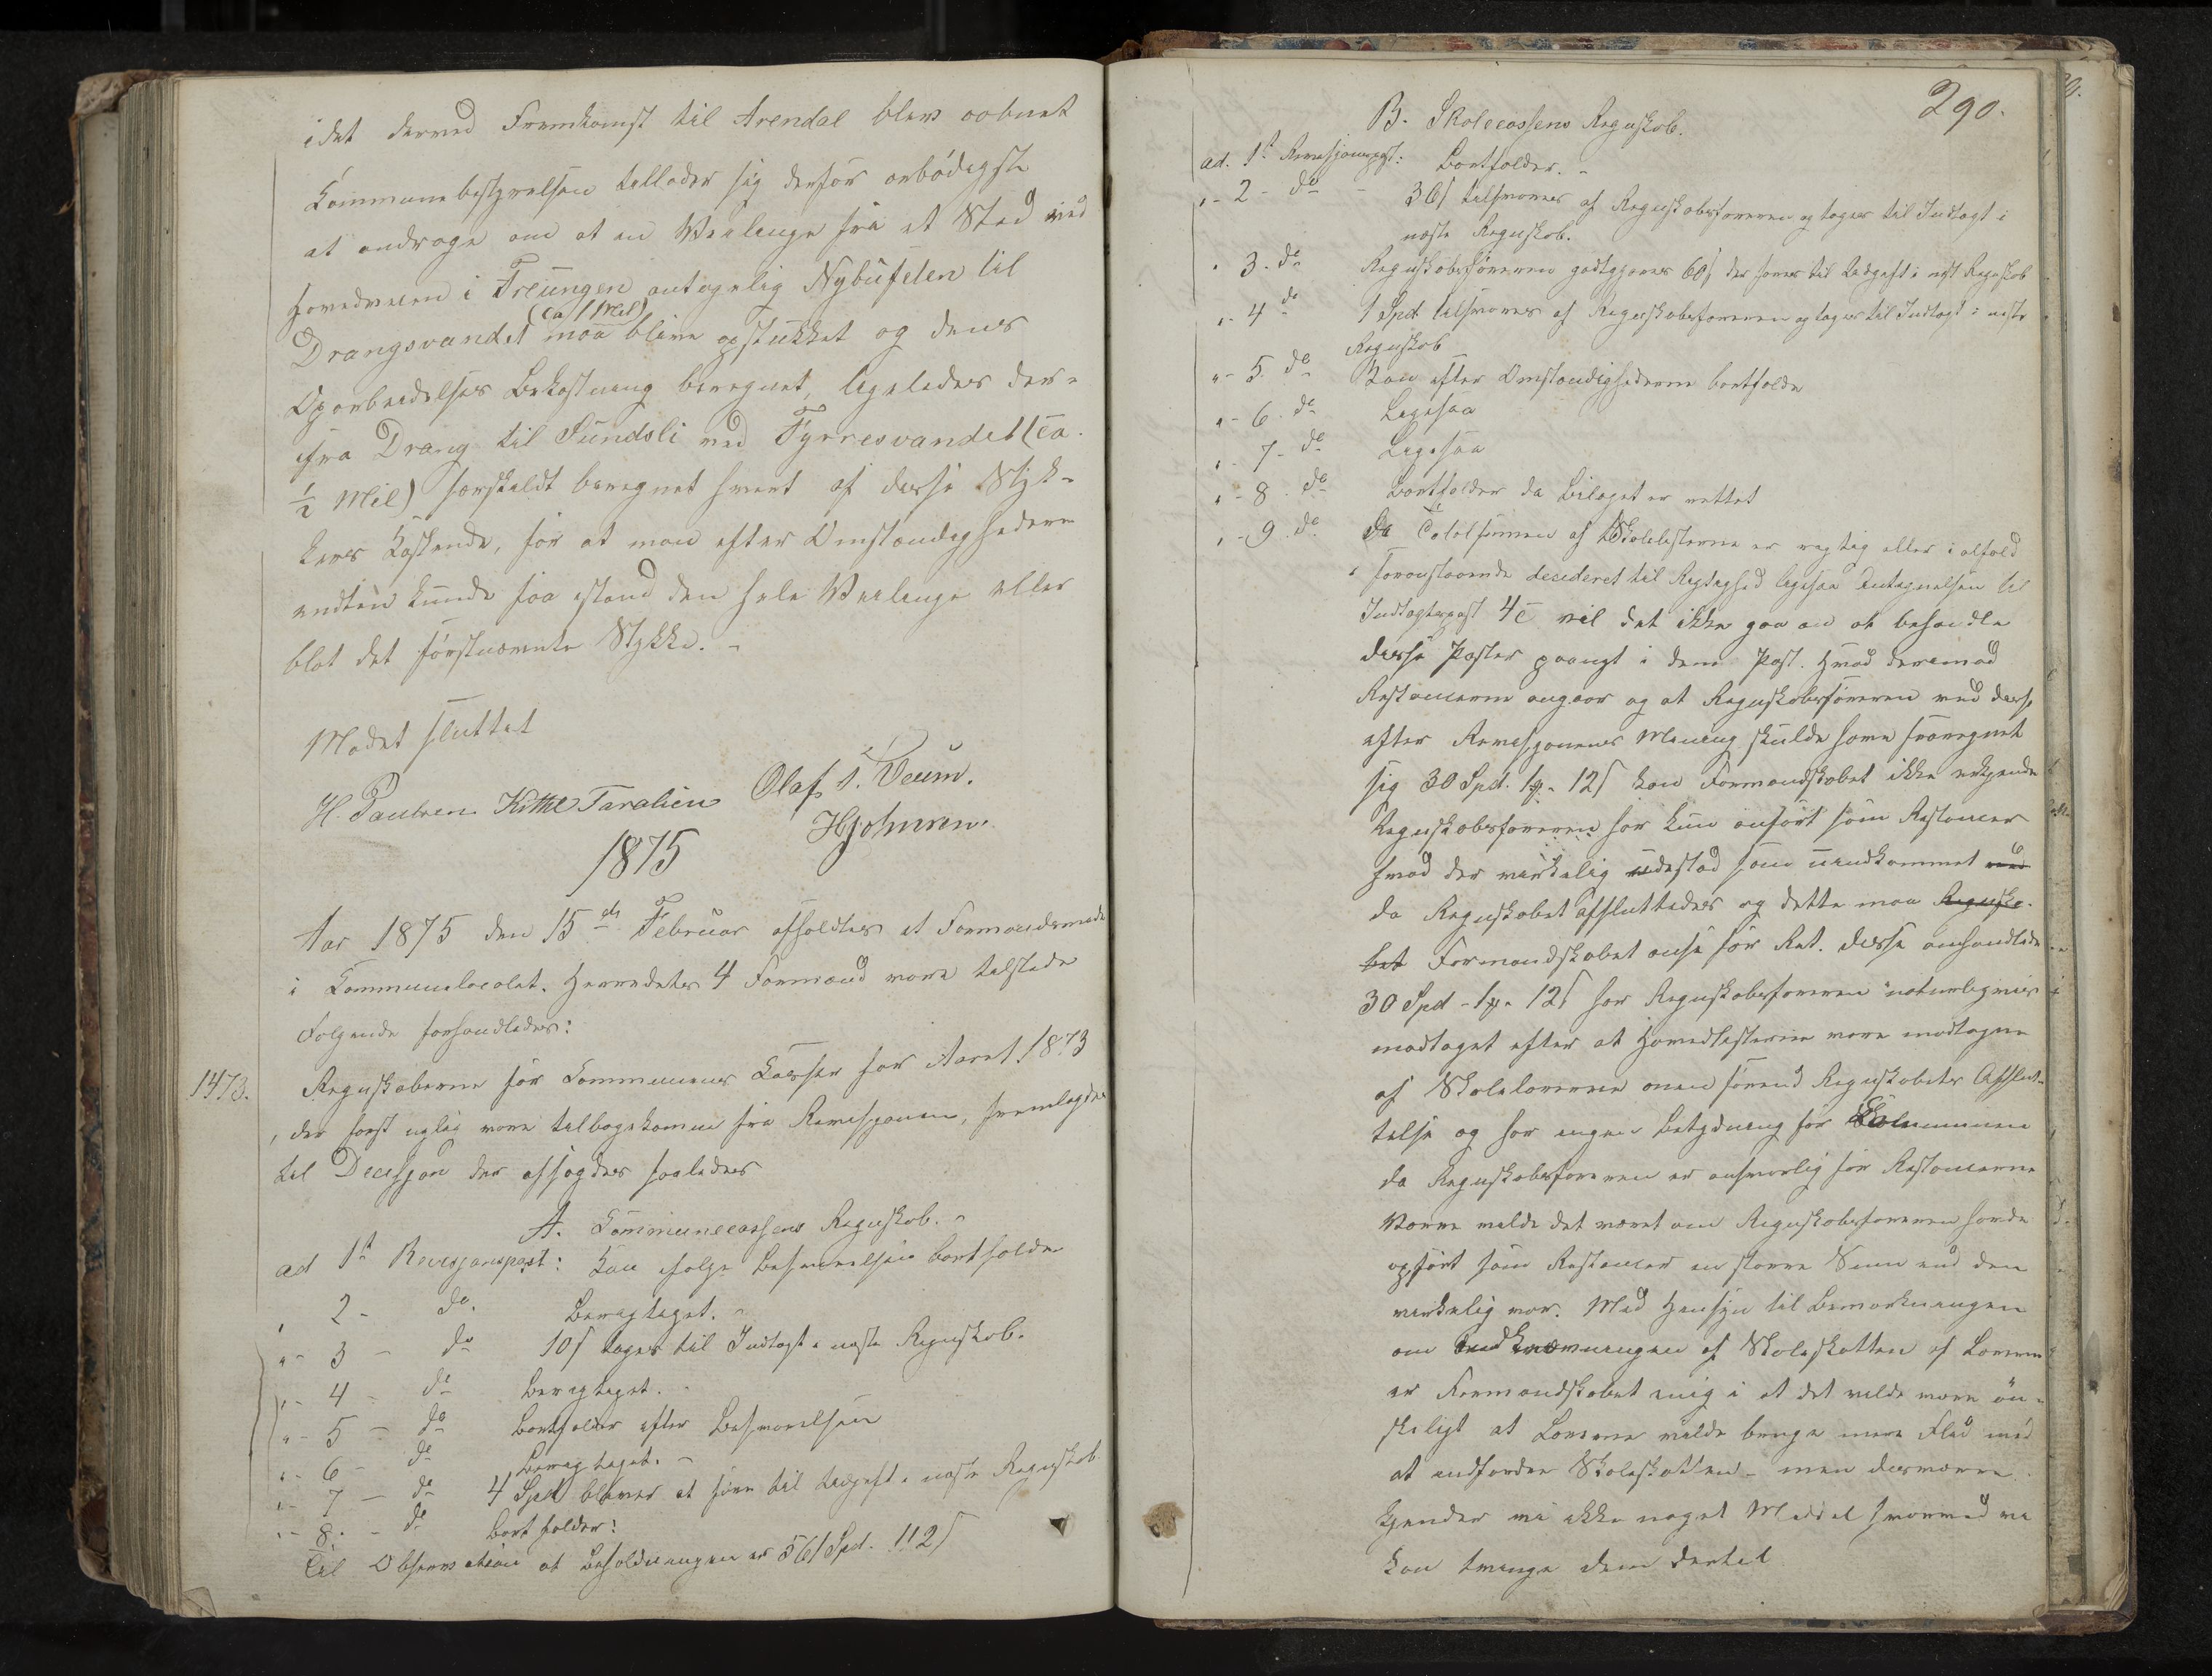 idet derved Fremkomst til Arendal blev aabnet
Kommunebestyrelsen tillader sig derfor ærbödigst
at andrage om at en Veilænge fra et Sted ved
Hovedveien i Treungen antagelig Nybufelen til
(ca 1 Mil)
Drangsvandet maa blive opstukket og dens
Oparbeidelses Bekostning beregnet, ligeledes der-
fra Drang til Sundsli ved Fyrresvandet (ca.
½ Mil) særskildt beregnet hvert af disse Styk-
kers Kostende, for at man efter Omstændighederne
endten kunde faa istand den hele Veilænge eller
blot det förstnævnte Stykke. -
Mødet sluttet
H. Paulsen Kittil Taraldlien Olaf T. Veum.
HJohnsen.
1875
Aar 1875 den 15de Februar afholdtes et Formandsmøde
i Kommunelocalet. Herredets 4 Formænd vare tilstede
Følgende forhandledes:
1473. Regnskaberne for Kommunens Kasser for Aaret 1873
, der først nylig vare tilbagekomne fra Revisjonen, fremlagdes
til Decisjon der afsagdes saaledes
A. Kommunecassens Regnskab. -
ad 1st Revisjonspost: Kan ifølge Besvarelsen bortfalde
" 2 - do. Beregtiget. -
"- 3 - do 10s tages til Indtægt i næste Regnskab.
"- 4 - do Beregtiget. -
"- 5 - do Bortfalder efter Besvarelsen
"- 6 - do Beregtiget. -
"- 7 - do 4 Spd bliver at føre til Udgift i næste Regnskab
"- 8. - do Bortfalder:
Til Observation at Beholdningen er 561 Spd. 112s
290.
B. Skolecassens Regnskab.
ad. 1st Revisjonspost: Bortfalder. -
"- 2 - do - 36s tilsvares af Regnskabsføreren og tages til Indtægt i
næste Regnskab.
" 3. do Regnskabsføreren godtgjøres 60s der føres til Udgift i næst Regnskab
"- 4 do 1 Spd tilsvares af Regnskabsføreren og tages til Indtægt i næste
Regnskab
"- 5. do Kan efter Omstændighederne bortfalde
"- 6. do Ligesaa
"- 7- do Ligesaa
"- 8. do Bortfalder da Bilaget er rettet
"- 9. do Da Totalsummen af Skolelisterne er rigtig eller i alfald
foranstaaende decideret til Rigtighed ligesaa Antegnelsen til
Indtægtspost 4c vil det ikke gaa an at behandle
disse Poster paanyt i denne Post. Hvad derimod
Restancerne angaar og at Regnskabsføreren ved disse
efter Revisjonens Mening skulde have fraregnet
sig 30 Spd. 1 - 12s kan Formandskabet ikke erkjende
Regnskabsføreren har kun anført som Restancer
hvad der virkelig udestod som uindkommet ved
da Regnskabet afsluttedes og dette maa Regnska-
bet Formandskabet anse for Ret. Disse omhandlede
30 Spd - 1 - 12s har Regnskabsføreren naturligvis
modtaget efter at Hovedlisterne vare modtagne
af Skolelærerne men førend Regnskabets Afslut-
telse og har ingen Betydning for Kommunen
da Regnskabsføreren er ansvarlig for Restancerne
Værre vilde det været om Regnskabsføreren havde
opført som Restancer en større Sum end den
virkelig var. Med Hensyn til Bemærkningen
om Inddrivningen af Skoleskatten af Lærerne
er Formandskabet enig i at det vilde være ön-
skeligt at Lærerne vilde bruge mere Flid med
at indfordre Skoleskatten - men desværre
kjender vi ikke noget Middel hvormed vi
kan tvinge dem dertil